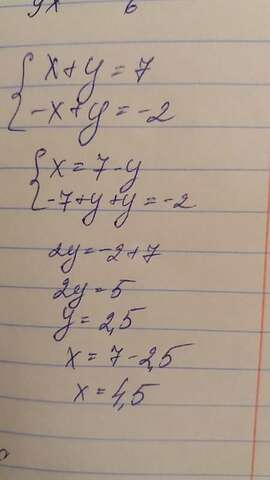 x+y=7
-x+y=-2
x=7-y
-7+y+y=-2
2y=-2+7
2y=5
y=2,5
x=7-2,5
x=4,5